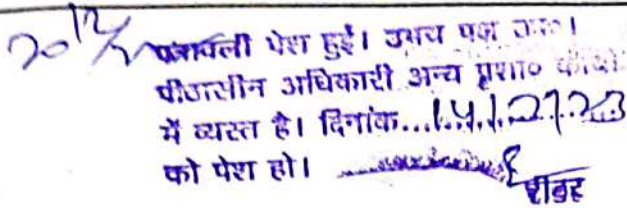 पत्रावली पेश हुई। उभय पक्ष उप०।
पीठासीन अधिकारी अन्य प्रशा० कार्यो
में व्यस्त है। दिनांक...
को पेश हो।
रीडर